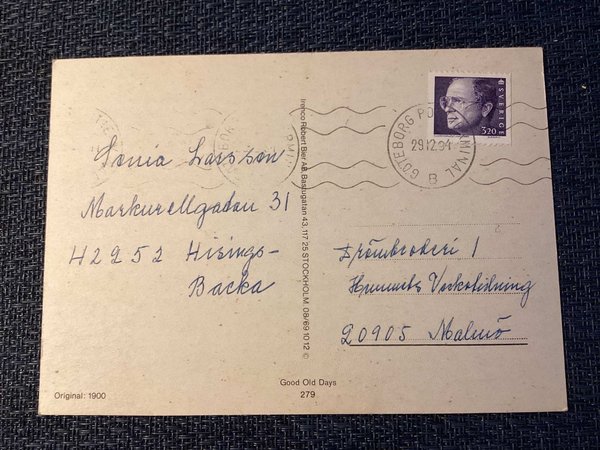 Sonia Larsson
Markurellgatan 31
42252 Hisings-
Backa
Irenco Robert Bier AB, Bastugatan 43, 117 25 STOCKHOLM. 08/69 10 12 ©
SVERIGE
3.20
GÖTEBORG POSTTERMINAL
29.12.94
B
Drömbroderi 1
Hemmets Veckotidning
20905 Malmö
Good Old Days
279
Original: 1900